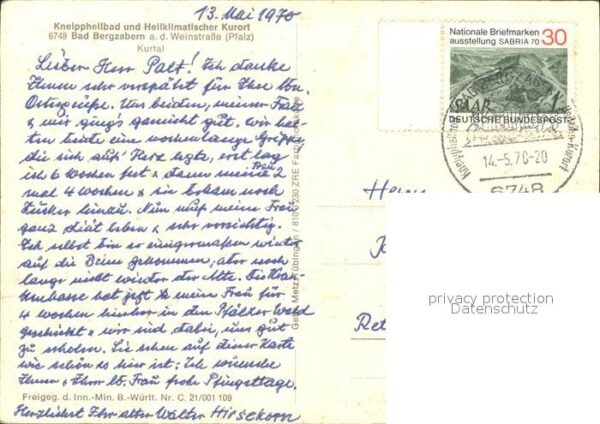 13. Mai 1970
Kneippheilbad und Heilklimatischer Kurort
6748 Bad Bergzabern a. d. Weinstraße (Pfalz)
Kurtal
Lieber Herr Palt! Ich danke
Ihnen sehr verspätet für Ihre lbn.
Ostergrüße. Uns beiden, meiner Frau
u. mir ging's garnicht gut. Wir hat-
ten beide eine wochenlange Grippe
die sich aufs Herz legte, erst lag
ich 6 Wochen fest u. dann meine Frau 2
mal 4 Wochen u. sie bekam noch
Zucker hinzu. Nun muß meine Frau
ganz diät leben u. sehr vorsichtig.
Ich selbst bin so einigermaßen wieder
auf die Beine gekommen, aber noch
lange nicht wieder der Alte. Die Kran-
kenkasse hat jetzt meine Frau für
4 Wochen hierher in den Pfälzer Wald
geschickt u. wir sind dabei, uns gut
zu erholen. Sie sehen auf dieser Karte
wie schön es hier ist. Ich wünsche
Ihnen u. Ihrer lb. Frau frohe Pfingsttage.
Freigeg. d. Inn.-Min. B.-Württ. Nr. C. 21/001 109
Herzlichst Ihr alter Walter Hirsekorn
Gebr. Metz, Tübingen
Nationale Briefmarken
ausstellung SABRIA 70
30
SAAR
DEUTSCHE BUNDESPOST
14.-5.70-20
6748
Herrn
privacy protection
Datenschutz